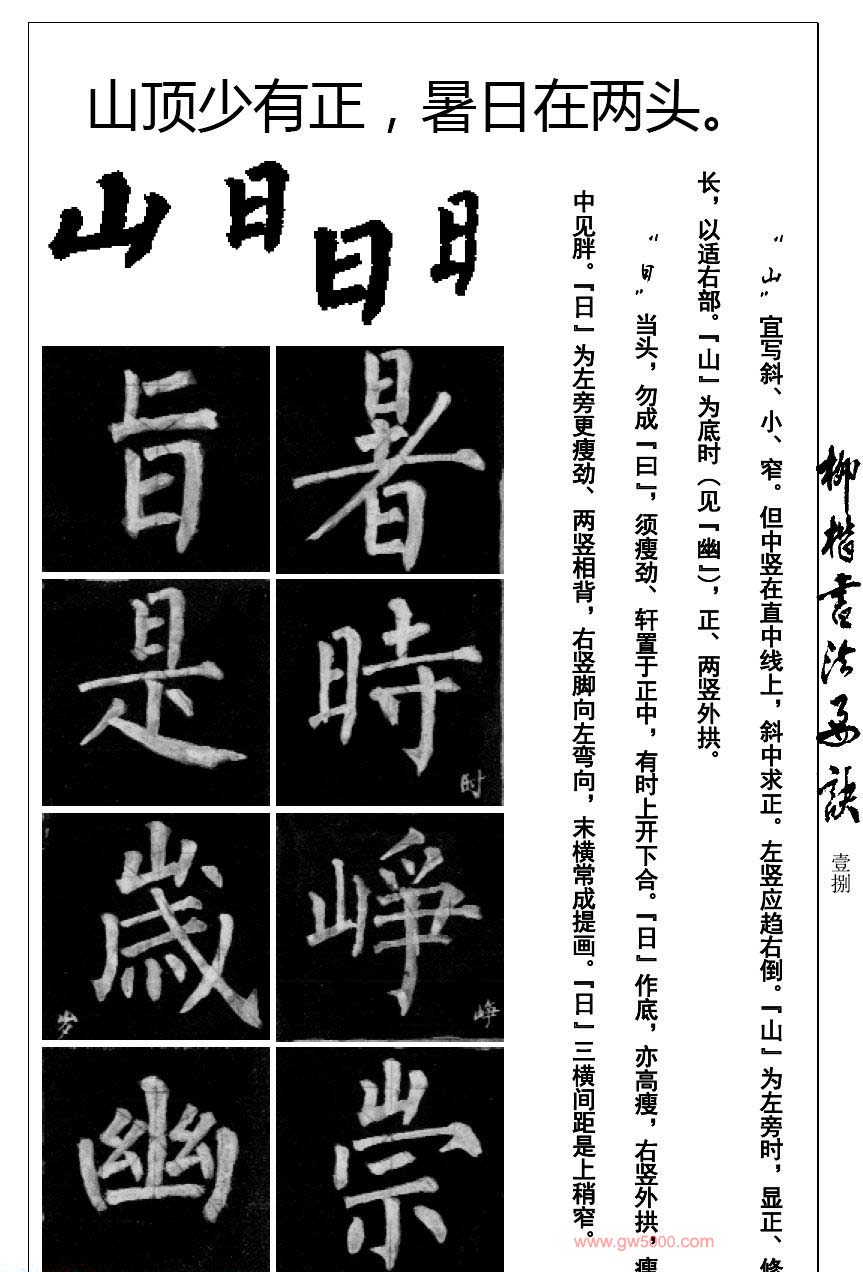 山顶少有正，暑日在两头。
山 日 日 日
旨 暑
是 時
时
歲 崢
岁 峥
幽 崇
“山”宜写斜、小、窄。但中竖在直中线上，斜中求正。左竖应趋右倒。『山』为左旁时，显正、修
长，以适右部。『山』为底时（见『幽』），正、两竖外拱。
“日”当头，勿成『曰』，须瘦劲、轩置于正中，有时上开下合。『日』作底，亦高瘦，右竖外拱，瘦
中见胖。『日』为左旁更瘦劲、两竖相背，右竖脚向左弯向，末横常成提画。『日』三横间距是上稍窄。
柳楷书法要诀
壹捌
www.gw5900.com